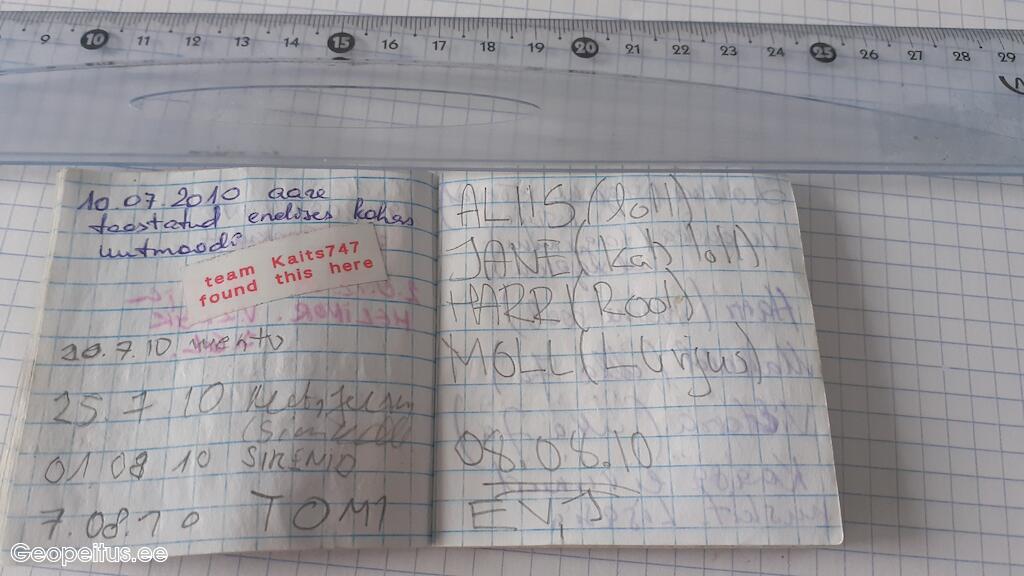 9 10 11 12 13 14 15 16 17 18 19 20 21 22 23 24 25 26 27 28 29
10.07.2010 aare
taastatud endises kohas
uutmoodi
team Kaits747
found this here
HELINOR.
20.7.10 mento
25.7 10
01.08 10 SIRENIO
7.08.10 TOM1
ALIIS (loll)
JANE (kah loll)
HARR (Rool)
MOLL (Lurjus)
08.08.10
Geopeitus.ee